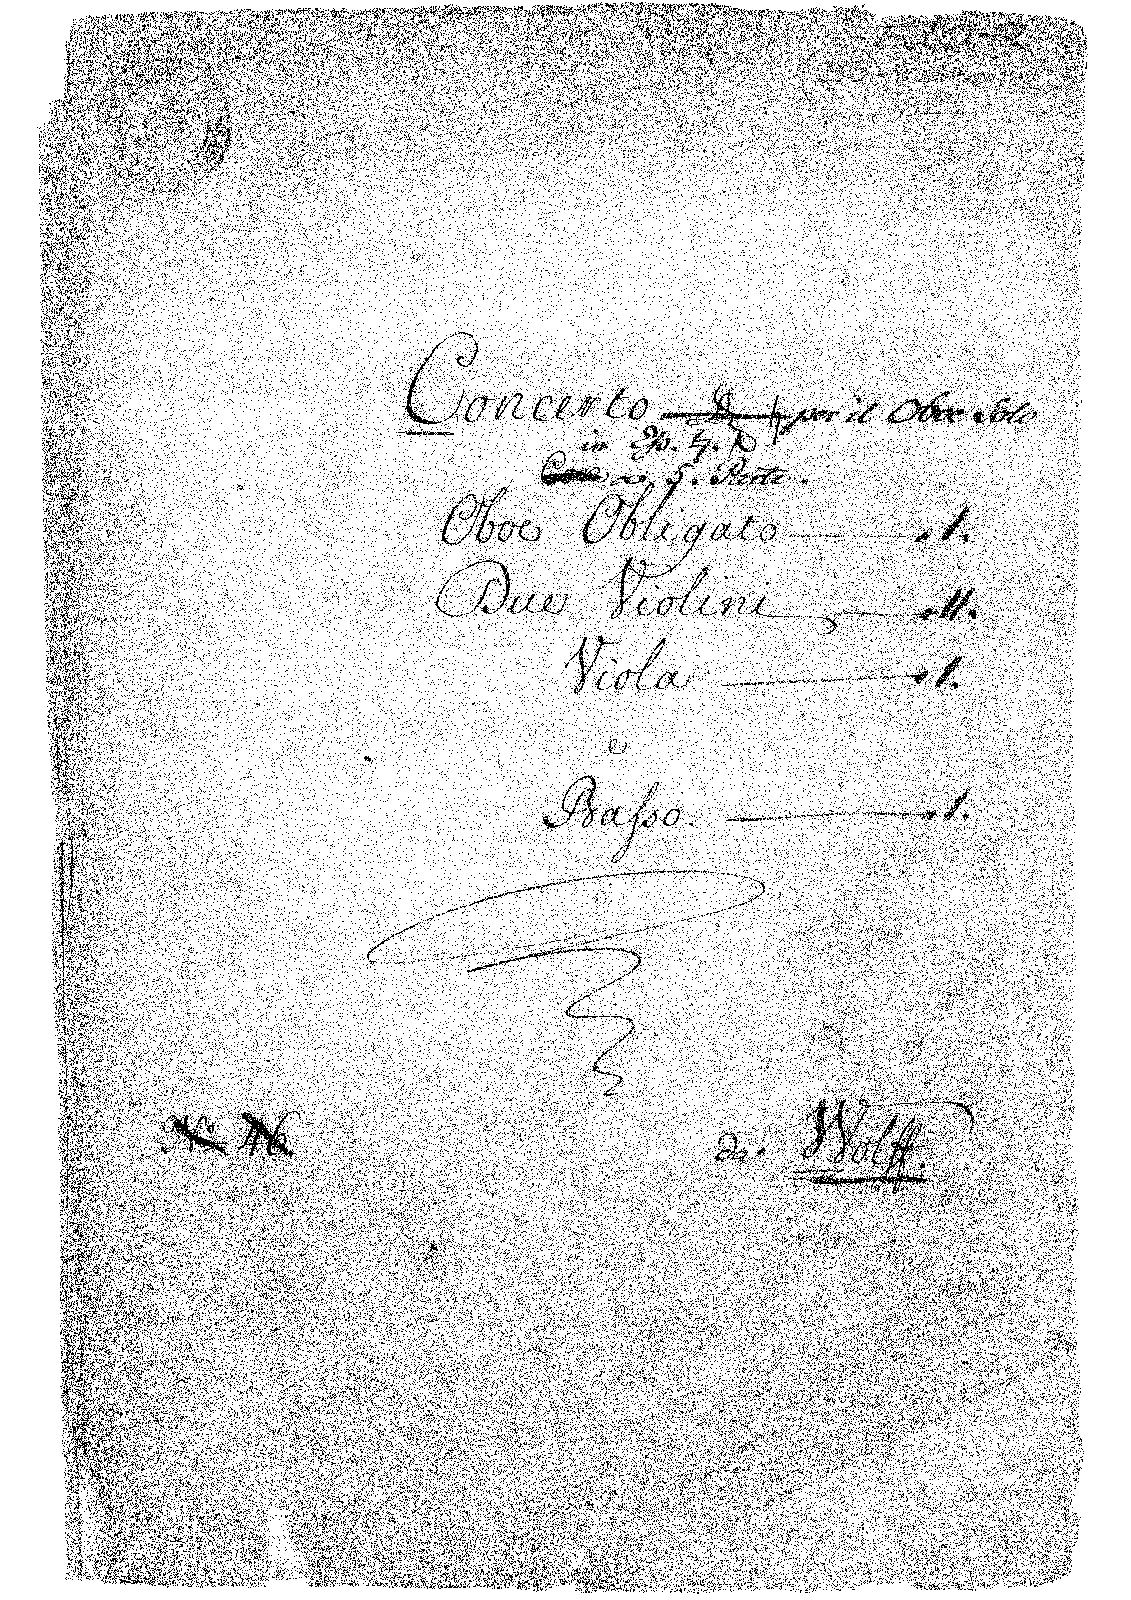 Concerto per il Oboe Solo
in
5.
Oboe Obligato .1.
Due Violini .11.
Viola .1.
e
Basso. .1.
No 46. da Wolff.